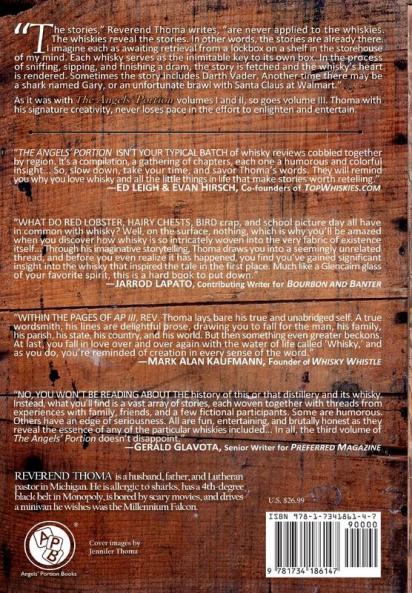 “The stories,” Reverend Thoma writes, “are never applied to the whiskies.
The whiskies reveal the stories. In other words, the stories are already there.
I imagine each as awaiting retrieval from a lockbox on a shelf in the storehouse
of my mind. Each whisky serves as the inimitable key to its own box. In the process
of sniffing, sipping, and finishing a dram, the story is fetched and the whisky’s heart
is rendered. Sometimes the story includes Darth Vader. Another time there may be
a shark named Gary, or an unfortunate brawl with Santa Claus at Walmart.”
As it was with The Angels’ Portion volumes I and II, so goes volume III. Thoma with
his signature creativity, never loses pace in the effort to enlighten and entertain.
“THE ANGELS’ PORTION ISN’T YOUR TYPICAL BATCH of whisky reviews cobbled together
by region. It’s a compilation, a gathering of chapters, each one a humorous and colorful
insight... So, slow down, take your time, and savor Thoma’s words. They will remind
you why you love whisky and all the little things in life that make stories worth retelling.”
—ED LEIGH & EVAN HIRSCH, Co-founders of TOPWHISKIES.COM
“WHAT DO RED LOBSTER, HAIRY CHESTS, BIRD crap, and school picture day all have
in common with whisky? Well, on the surface, nothing, which is why you’ll be amazed
when you discover how whisky is so intricately woven into the very fabric of existence
itself... Through his imaginative storytelling, Thoma draws you into a seemingly unrelated
thread, and before you even realize it has happened, you find you’ve gained significant
insight into the whisky that inspired the tale in the first place. Much like a Glencairn glass
of your favorite spirit, this is a hard book to put down.”
—JARROD LAPATO, Contributing Writer for BOURBON AND BANTER
“WITHIN THE PAGES OF AP III, REV. THOMA lays bare his true and unabridged self. A true
wordsmith, his lines are delightful prose, drawing you to fall for the man, his family,
his parish, his state, his country, and his world. But then something even greater beckons.
At last, you fall in love over and over again with the water of life called ‘Whisky,’ and
as you do, you’re reminded of creation in every sense of the word.”
—MARK ALAN KAUFMANN, Founder of WHISKY WHISTLE
“NO, YOU WON’T BE READING ABOUT THE history of this or that distillery and its whisky.
Instead, what you’ll find is a vast array of stories, each woven together with threads from
experiences with family, friends, and a few fictional participants. Some are humorous.
Others have an edge of seriousness. All are fun, entertaining, and brutally honest as they
reveal the essence of any of the particular whiskies included... In all, the third volume of
The Angels’ Portion doesn’t disappoint.”
—GERALD GLAVOTA, Senior Writer for PREFERRED MAGAZINE
REVEREND THOMA is a husband, father, and Lutheran
pastor in Michigan. He is allergic to sharks, has a 4th-degree
black belt in Monopoly, is bored by scary movies, and drives
a minivan he wishes was the Millennium Falcon.
U.S. $26.99
ISBN 978-1-7341861-4-7
90000
9 781734 186147
APB
Angels’ Portion Books
Cover images by
Jennifer Thoma